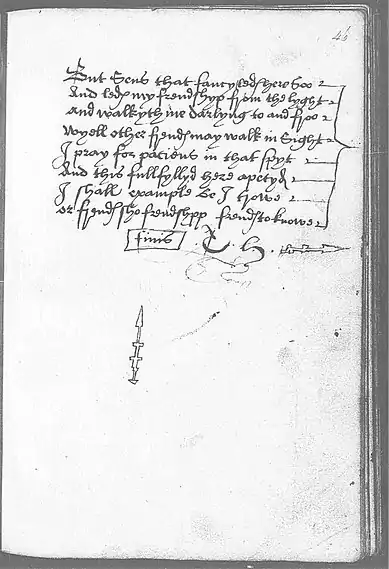 46
But sens that fancy leds her soo
And leds my frendshyp from the lyght
And walkyth me darlyng to and froo
wyell other frends may walk in sight
I pray for paciens in that spyt
And this fullfyllyd here apetyd
I shall example be I trowe
or frends sho frendshypp frends to knowe
finis